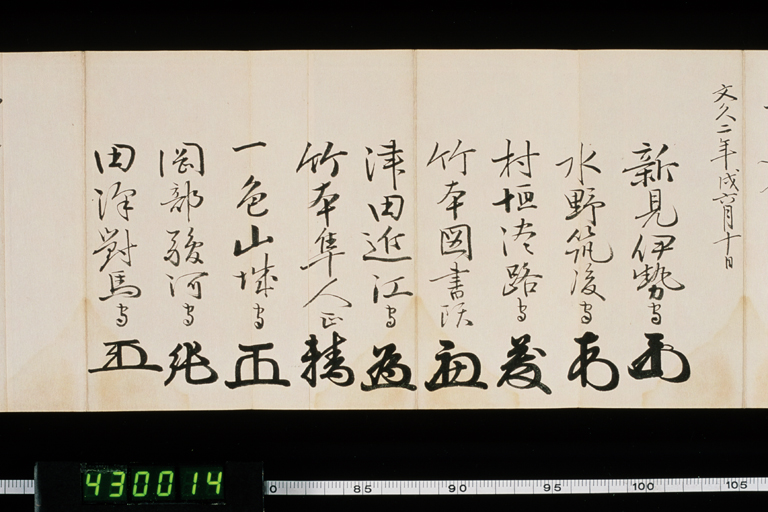 文久二年戌六月十日
新見伊勢守
水野筑後守
村垣淡路守
竹本図書頭
津田近江守
竹本隼人正
一色山城守
岡部駿河守
田沢對馬守
430014
0 85 90 95 100 105